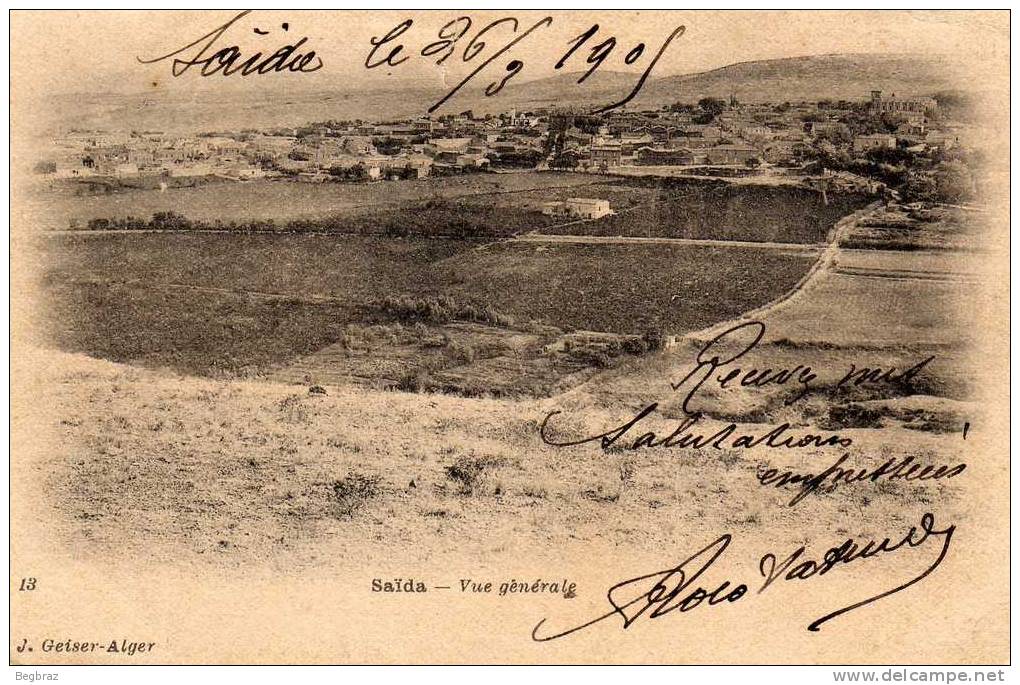 Saïda le 26/3 1905
mes
Salutations
empressées
13
Saïda — Vue générale
J. Geiser-Alger
Begbraz
www.delcampe.net